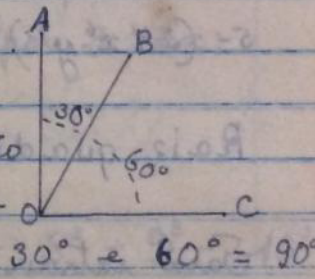 A
B
30°
60°
O
C
30° e 60° = 90°